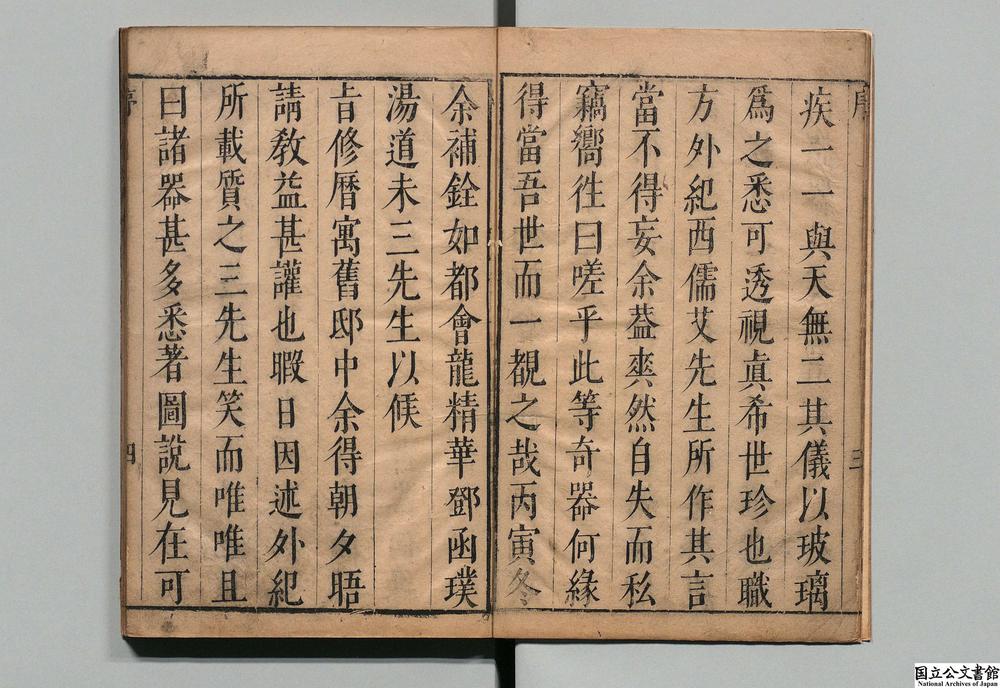 序
三
疾一一與天無二其儀以玻璃
爲之悉可透視眞希世珍也職
方外紀西儒艾先生所作其言
當不得妄余葢爽然自失而私
竊嚮徃曰嗟乎此等奇器何緣
得當吾世而一覩之哉丙寅冬
余補銓如都會龍精華鄧函璞
湯道未三先生以候
旨修曆寓舊邸中余得朝夕晤
請敎益甚讙也暇日因述外紀
所載質之三先生笑而唯唯且
曰諸器甚多悉著圖說見在可
序
四
国立公文書館
National Archives of Japan